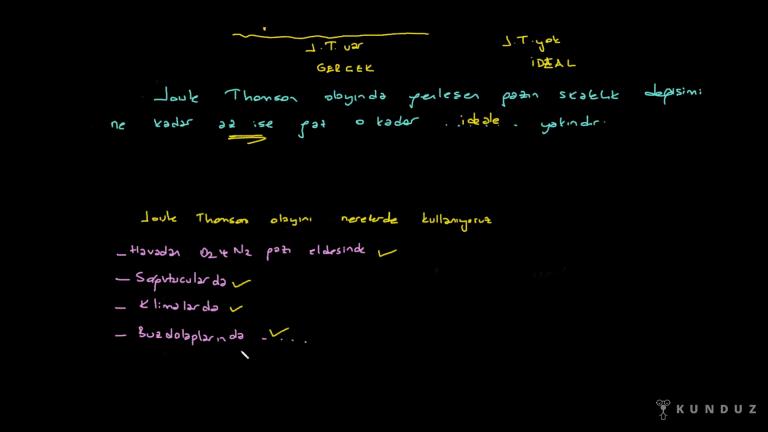 J.T. var
J.T. yok
GERCEK
İDEAL
Joule Thomson olayında genleşen gazın sıcaklık değişimi
ne kadar az ise gaz o kadar ..ideale.. yakındır.
Joule Thomson olayını nerelerde kullanıyoruz
- Havadan O2 ve N2 gazı eldesinde ✓
- Soğutucularda ✓
- Klimalarda ✓
- Buzdolaplarında ✓ - . . .
KUNDUZ